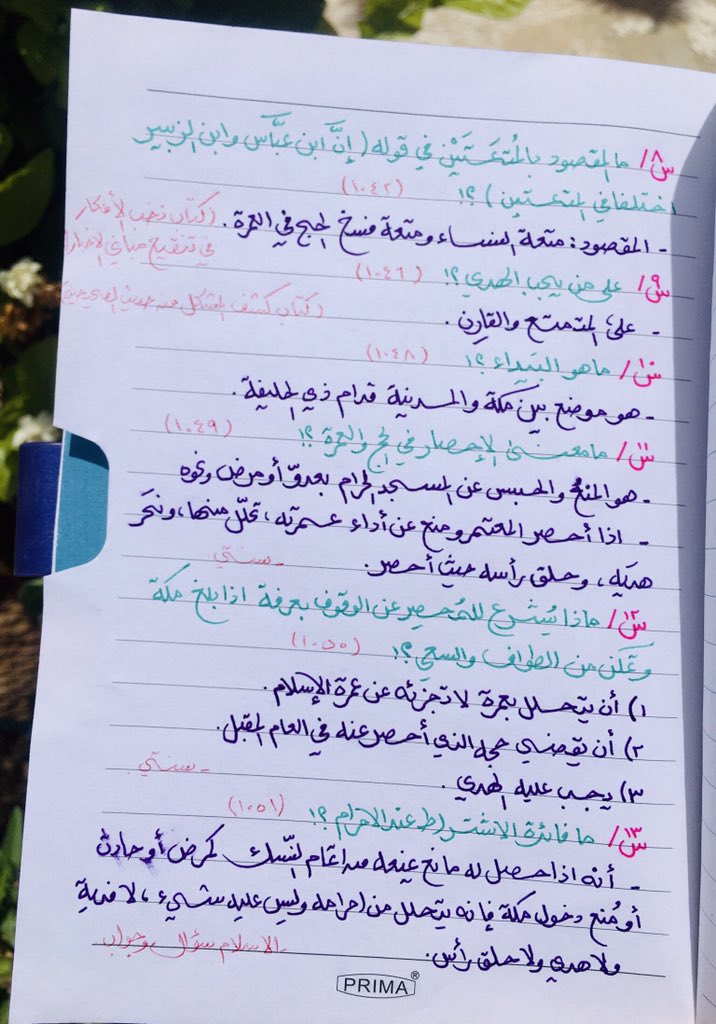 س٨/ ما المقصود بالمُتعَتَيْن في قوله (إنَّ ابن عبَّاس وابن الزبير
اختلفا في المتعتين) ؟! (١٠٤٢)
- المقصود: متعة النساء ومتعة فسخ الحج في العمرة. (كتاب نخب الأفكار
في تنقيح مباني الأخبار)
س٩/ على من يجب الهدي؟! (١٠٤٦)
- على المتمتع والقارن. (كتاب كشف المشكل من حديث الصحيحين)
س١٠/ ما هو البيداء؟! (١٠٤٨)
- هو موضع بين مكة والمدينة قدام ذي الحليفة.
س١١/ ما معنى الإحصار في الحج والعمرة؟! (١٠٤٩)
- هو المنع والحبس عن المسجد الحرام بعدوّ أو مرض ونحوه
- اذا أحصر المعتمر ومنع عن أداء عمرته، تحلّل منها، ونحَر
هديَه، وحلق رأسه حيث أحصر. - سنتي
س١٢/ ماذا يُشرع للمُحصر عن الوقوف بعرفة اذا بلغ مكة
وتمكن من الطواف والسعي؟! (١٠٥٠)
١) أن يتحلل بعمرة لا تجزئه عن عمرة الإسلام.
٢) أن يقضي حجه الذي أحصر عنه في العام المقبل.
٣) يجب عليه الهدي. - سنتي
س١٣/ ما فائدة الاشتراط عند الاحرام؟! (١٠٥١)
- أنه اذا حصل له مانع يمنعه من اتمام النّسك كمرض أو حادث
أو مُنع دخول مكة فإنه يتحلل من إحرامه وليس عليه شيء، لا فدية
ولا هدي ولا حلق رأس. - الاسلام سؤال وجواب
PRIMA®